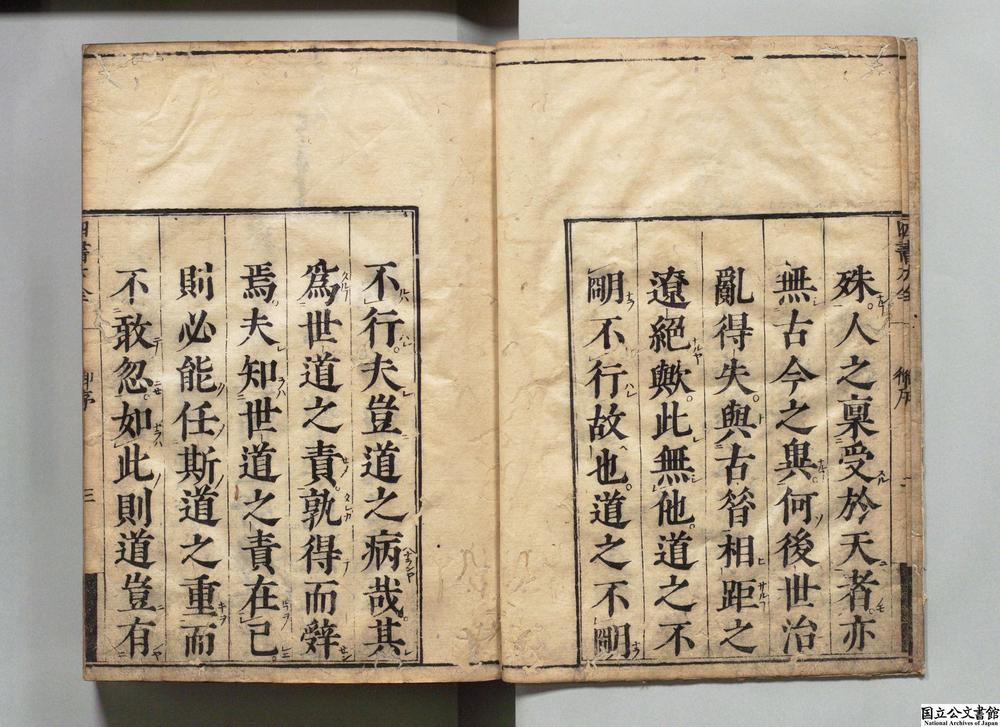 殊。人之稟受於天者。亦
無古今之異。何後世治
亂得失。與古昔相距之
遼絶歟。此無他。道之不
明不行故也。道之不明
不行。夫豈道之病哉。其
爲世道之責。孰得而辤
焉。夫知世道之責在己。
則必能任斯道之重而
不敢忽。如此則道豈有
四書大全
御序
三
国立公文書館
National Archives of Japan